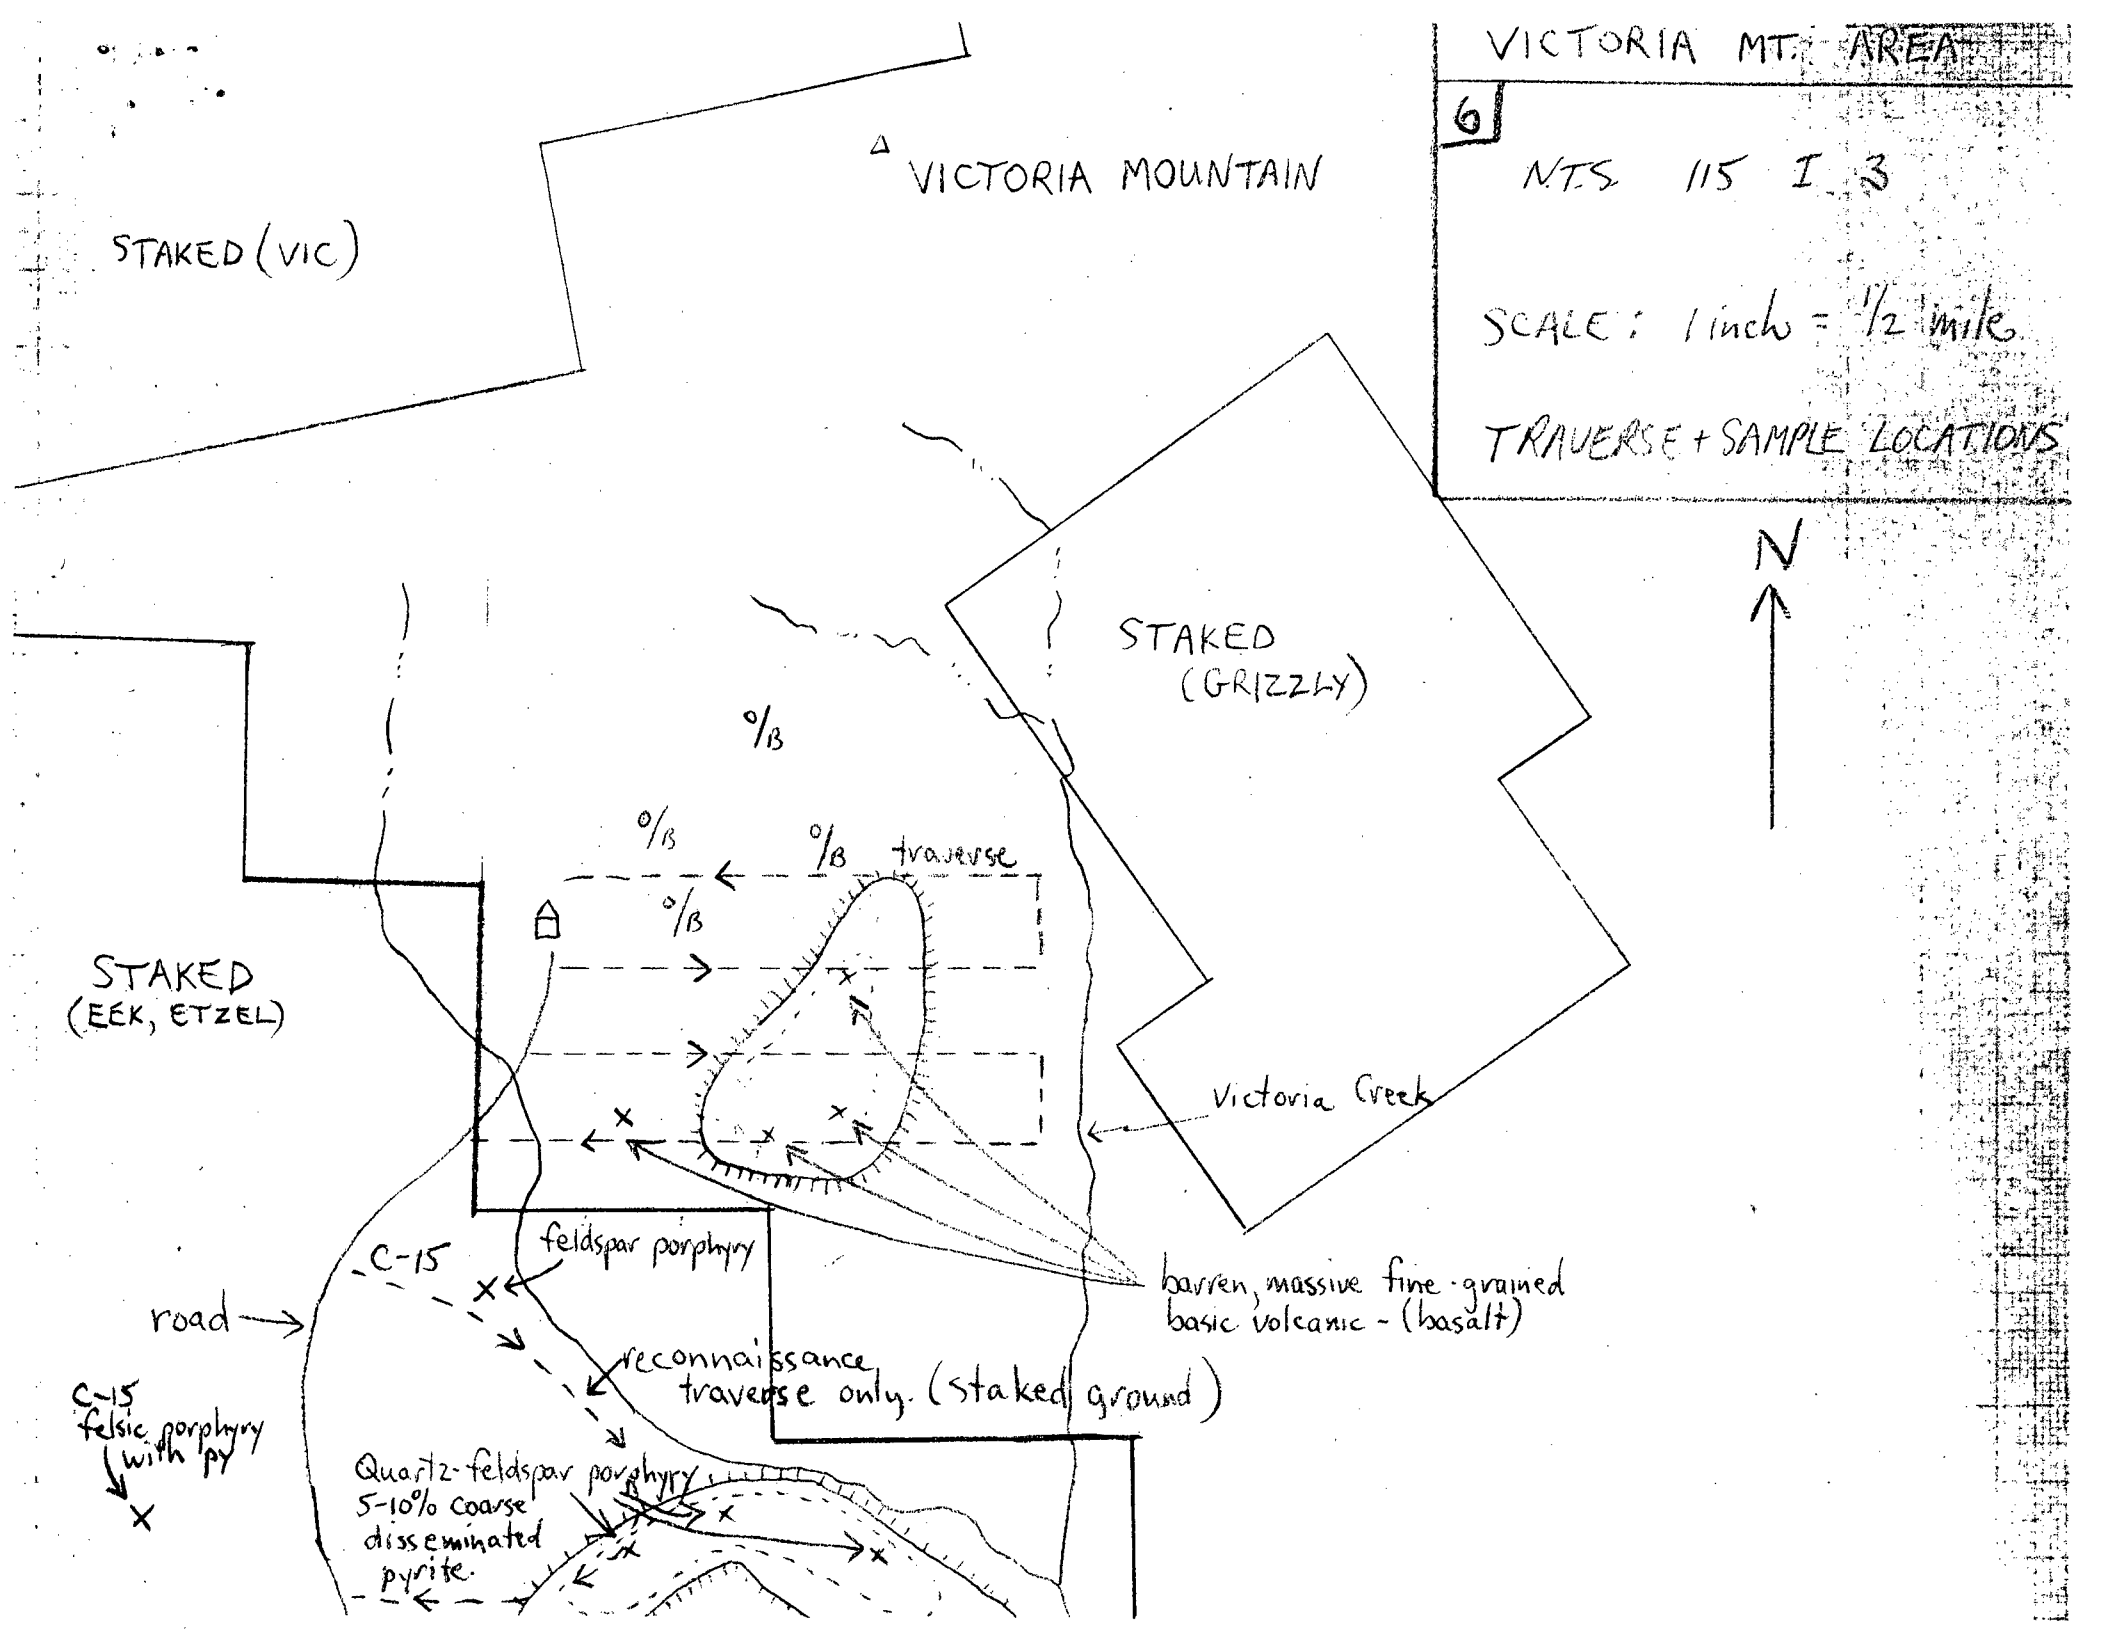 VICTORIA MT. AREA
6
N.T.S. 115 I 3
SCALE: 1 inch = 1/2 mile
TRAVERSE + SAMPLE LOCATIONS
N
VICTORIA MOUNTAIN
STAKED (VIC)
STAKED
(GRIZZLY)
O/B
O/B
O/B
traverse
O/B
STAKED
(EEK, ETZEL)
Victoria Creek
feldspar porphyry
C-15
barren, massive fine-grained
basic volcanic - (basalt)
road
reconnaissance
traverse only. (staked ground)
C-15
felsic porphyry
with py
Quartz-feldspar porphyry
5-10% coarse
disseminated
pyrite.